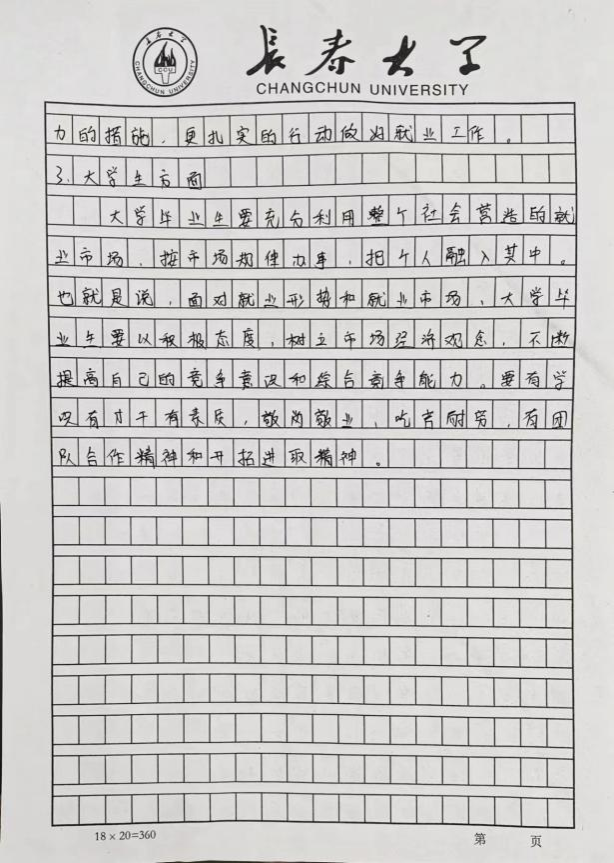 長春大学
CHANGCHUN UNIVERSITY
长春大学
CCU
CHANGCHUN UNIVERSITY
力的措施,更扎实的行动做好就业工作。
3、大学生方面
大学毕业生要充分利用整个社会营造的就
业市场,按市场规律办事,把个人融入其中。
也就是说,面对就业形势和就业市场,大学毕
业生要以积极态度,树立市场经济观念,不断
提高自己的竞争意识和综合竞争能力。要有学
识有才干有素质,敬岗敬业,吃苦耐劳,有团
队合作精神和开拓进取精神。
18×20=360
第 页